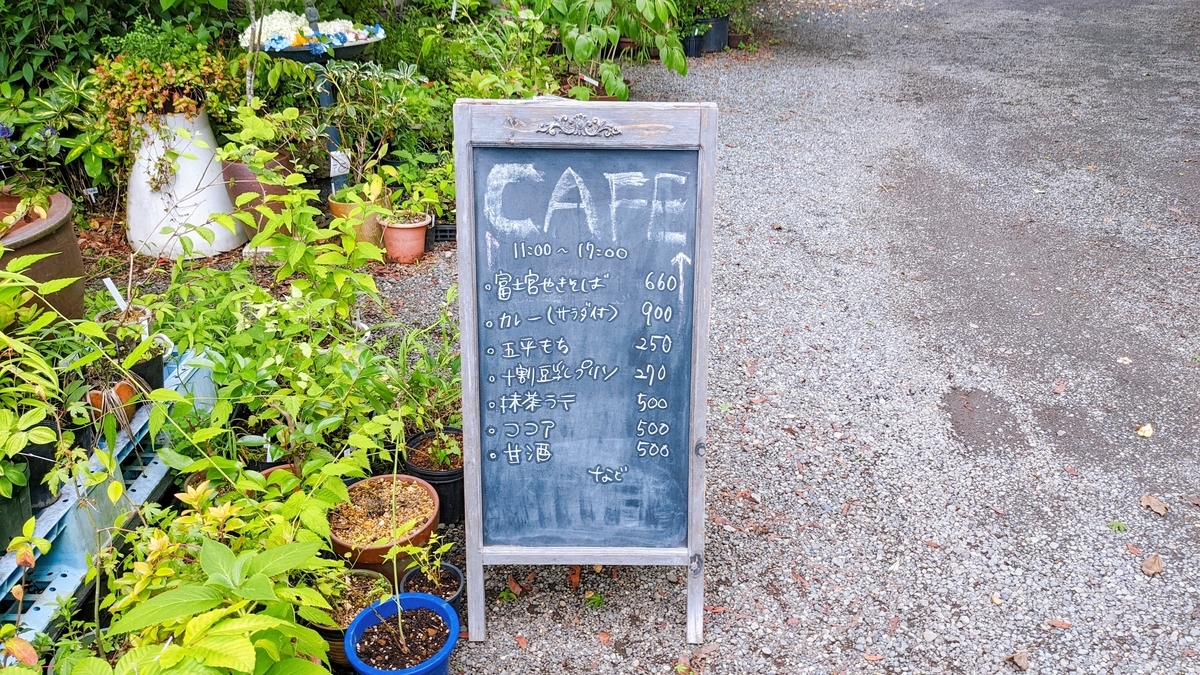 CAFE
11:00～17:00
。富士宮やきそば 660
。カレー(サラダ付) 900
。五平もち 250
。十割豆乳プリン 270
。抹茶ラテ 500
。ココア 500
。甘酒 500
など